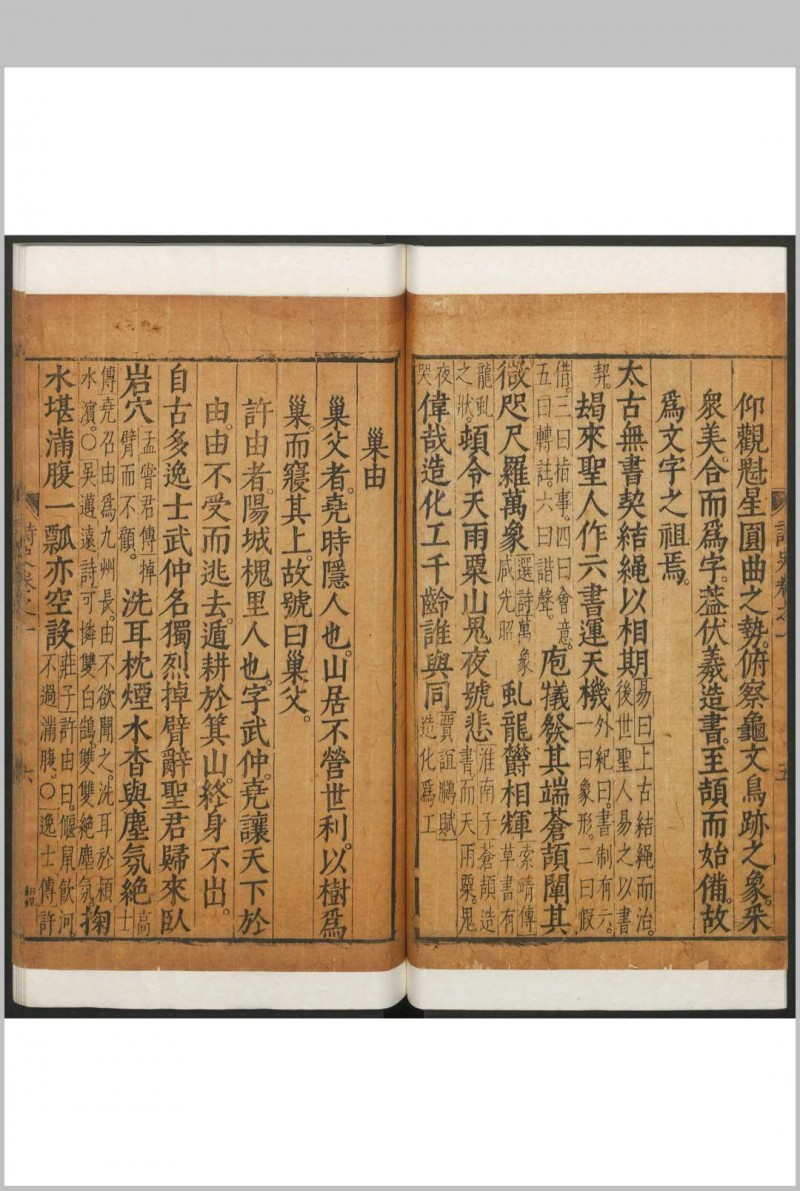 仰觀慰星圓曲之勢。俯察龜文鳥跡之象。采
衆美。合而爲字。葢伏羲造書。至頡而始備。故
爲文字之祖焉。
太古無書契結繩以相期易曰上古結繩而治。後世聖人易之以書
契。朅來聖人作六書運天機外紀曰。書制有六。一曰象形。二曰假
借。三曰指事。四曰會意。五曰轉註。六曰諧聲。庖犠發其端蒼頡闡其
微咫尺羅萬象選詩萬象咸光昭虬龍欝相輝索靖傳草書有
龍虬之狀。頓令天雨粟山鬼夜號悲淮南子蒼頡造書而天雨粟。鬼
夜哭偉哉造化工千齡誰與同賈誼鵬賦造化爲工
詩史卷之一
五
巢由
巢父者。堯時隱人也。山居不營世利。以樹爲
巢。而寢其上。故號曰巢父。
許由者。陽城槐里人也。字武仲。堯讓天下於
由。由不受而逃去。遁耕於箕山。終身不出。
自古多逸士武仲名獨烈掉臂辭聖君歸來臥
岩穴孟甞君傳掉臂而不顧。洗耳枕煙水杳與塵氛絶高士
傳堯召由爲九州長。由不欲聞之。洗耳於潁水濱。○吳邁遠詩可憐雙白鵠。雙雙絶塵氛。掬
水堪滿腹一瓢亦空設莊子許由曰。偃鼠飲河。不過滿腹。○逸士傳許
詩史卷之一
六